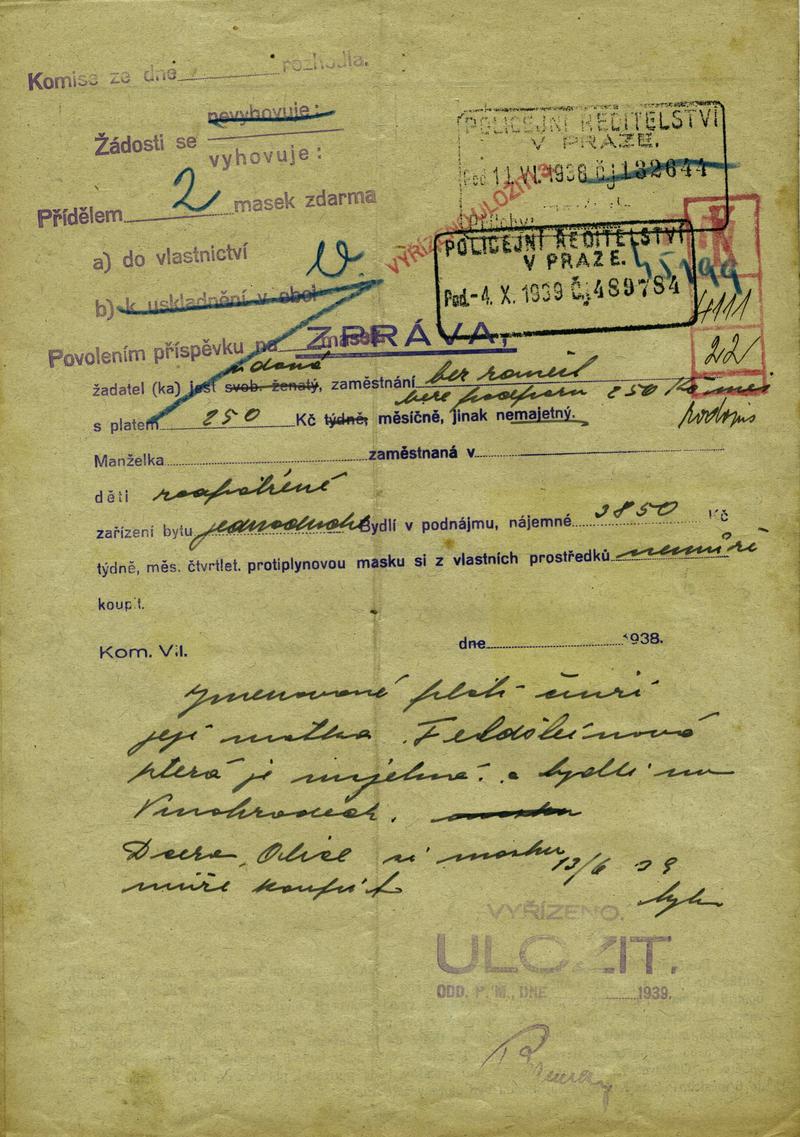 Komise ze dne rozhodla.
nevyhovuje:
Žádosti se
vyhovuje:
Přídělem 2 masek zdarma
a) do vlastnictví
b) k uskladnění v obci
Povolením příspěvku na masek
POLICEJNÍ ŘEDITELSTVÍ
V PRAZE.
Pod 11.VI.1938 čj 132644
Přílohy:
VYŘÍZENO ULOŽIT
POLICEJNÍ ŘEDITELSTVÍ
V PRAZE.
Pod -4. X. 1939 Čj 489784
4111
22
ZPRÁVA,
žadatel (ka) jest svob. ženatý, zaměstnání bez zaměst
bere podporu 250 Kč měs
s platem 250 Kč týdně, měsíčně, jinak nemajetný.
Manželka zaměstnaná v
děti zaopatřené
zařízení bytu jednoduché Bydlí v podnájmu, nájemné 3850 Kč
týdně, měs. čtvrtlet. protiplynovou masku si z vlastních prostředků nemůže
koupit.
Kom. VII. dne 1938.
Jmenované platí činži
její matka Feldsteinová
která je majetná a bydlí na
Vinohradech.
Dcera Alice si masku
může koupit 13/6 39
VYŘÍZENO.
ULOŽIT.
ODD. P. M., DNE 1939.